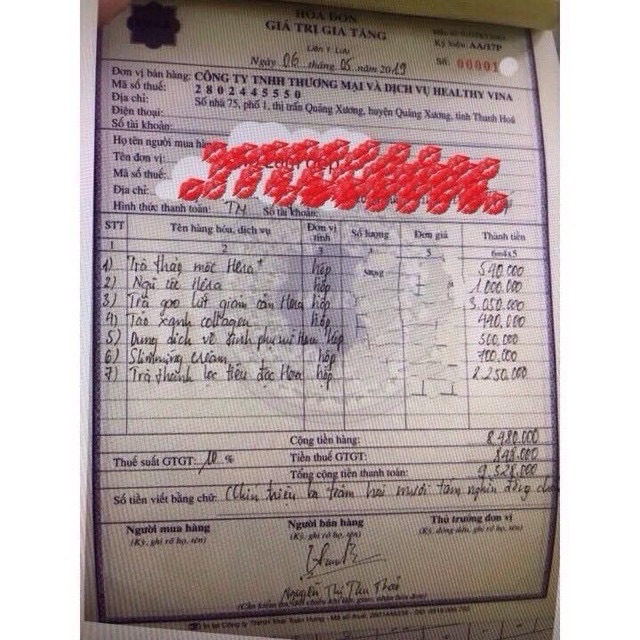 HÓA ĐƠN
GIÁ TRỊ GIA TĂNG
Liên 1: Lưu
Ký hiệu: AA/17P
Ngày 06 tháng 05 năm 2019
Số: 00001
Đơn vị bán hàng: CÔNG TY TNHH THƯƠNG MẠI VÀ DỊCH VỤ HEALTHY VINA
Mã số thuế: 2802445550
Địa chỉ: Số nhà 75, phố 1, thị trấn Quảng Xương, huyện Quảng Xương, tỉnh Thanh Hoá
Điện thoại:
Số tài khoản:
Họ tên người mua hàng
Tên đơn vị:
Mã số thuế:
Địa chỉ:
Hình thức thanh toán: TM Số tài khoản:
STT Tên hàng hóa, dịch vụ Đơn vị tính Số lượng Đơn giá Thành tiền
1 2 3 5 6=4x5
1) Trà thảo mộc Hera+ hộp 540.000
2) Ngũ cốc Héra hộp 1.000.000
3) Trà gạo lứt giảm cân Hera hộp 3.050.000
4) Táo xanh collagen hộp 440.000
5) Dung dịch vệ sinh phụ nữ Hera hộp 500.000
6) Slimming cream hộp 700.000
7) Trà thanh lọc tiêu độc Hera hộp 2.250.000
Cộng tiền hàng: 8.480.000
Thuế suất GTGT: 10 % Tiền thuế GTGT: 848.000
Tổng cộng tiền thanh toán: 9.328.000
Số tiền viết bằng chữ: Chín triệu ba trăm hai mươi tám nghìn đồng
Người mua hàng Người bán hàng Thủ trưởng đơn vị
(Ký, ghi rõ họ, tên) (Ký, ghi rõ họ, tên) (Ký, đóng dấu, ghi rõ họ, tên)
Nguyễn Thị Thu Thảo